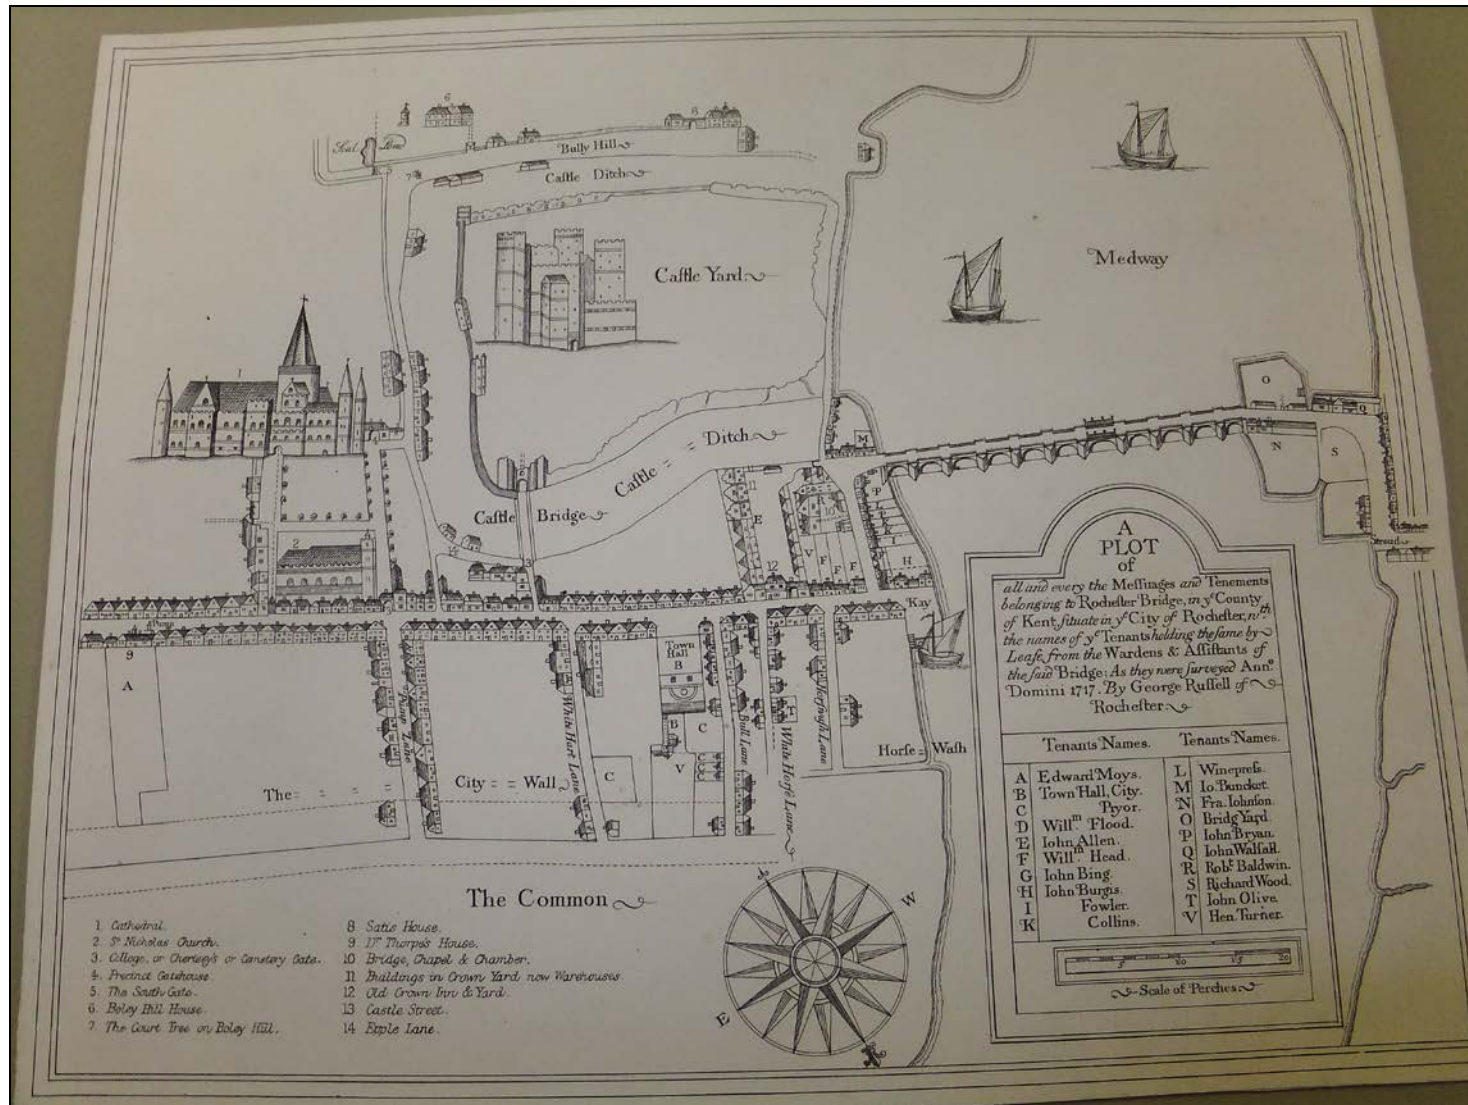 Bully Hill
Castle Ditch
Castle Yard
Medway
Castle = = Ditch
Castle Bridge
Stroud
Kay
Town
Hall
B
Pump Lane
White Hart Lane
Bull Lane
White Horse Lane
Horse = Wash
The = = = =
City = = Wall
The Common
A
PLOT
of
all and every the Meſſuages and Tenements
belonging to Rocheſter Bridge, in yͤ County
of Kent, ſituate in yͤ City of Rocheſter, wᵗʰ
the names of yͤ Tenants holding the ſame by
Leaſe, from the Wardens & Aſſiſtants of
the ſaid Bridge: As they were ſurveyed Annᵒ
Domini 1717. By George Ruſſell of
Rocheſter.
Tenants Names. Tenants Names.
A Edward Moys. L Winepreſs.
B Town Hall, City. M Io. Buncket.
C Pryor. N Fra. Iohnſon.
D Willᵐ Flood. O Bridg Yard.
E Iohn Allen. P Iohn Bryan.
F Willᵐ Head. Q Iohn Walſall.
G Iohn Bing. R Robᵗ Baldwin.
H Iohn Burgis. S Richard Wood.
I Fowler. T Iohn Olive.
K Collins. V Hen. Turner.
5 10 15 20
Scale of Perches
1 Cathedral.
2 Sᵗ Nicholas Church.
3 College, or Chertsey's or Cemetery Gate.
4 Precinct Gatehouse.
5 The South Gate.
6 Boley Hill House.
7 The Court Tree on Boley Hill.
8 Satis House.
9 Dʳ Thorpe's House.
10 Bridge, Chapel & Chamber.
11 Buildings in Crown Yard now Warehouses.
12 Old Crown Inn & Yard.
13 Castle Street.
14 Epple Lane.
W
E